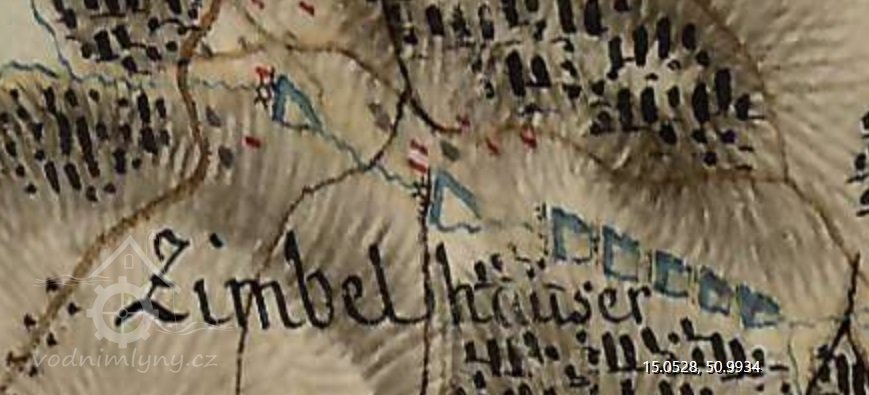 Zimbel häuser
vodnimlyny.cz
15.0528, 50.9934